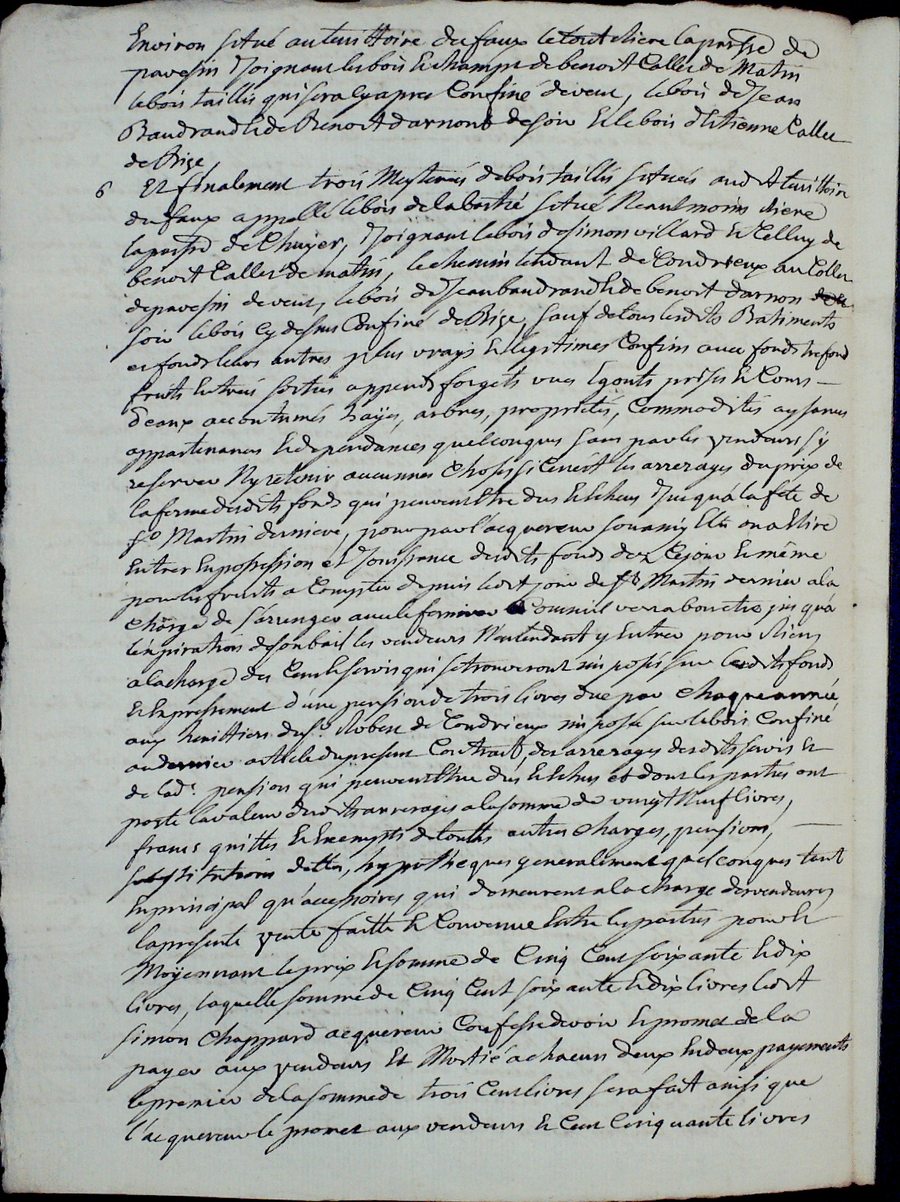 Environ situé au territoire du faux le tout riere la parsse de
pavesin joignant les bois et champs de benoit Callet de Matin
le bois taillis qui sera cy apres Confiné de vent, le bois de Jean
Baudrand h de Benoit darnond de soir et le bois d'Etienne Callet
de Bize,
6 Et finalement trois Mesterées de bois taillis situées aud.t territoire
du faux appellé le bois de la bastié situé Neanlmoins riere
la parsse de Chuÿer, joignant le bois de simon villard et Celluy de
benoit Callet de matin, le chemin tendant de Condrieux au Collet
de pavesin de vent, le bois de Jean baudrand h de benoit darnon
soir le bois cy dessus Confiné de Bize, sauf de tous lesd.ts Batiments
et fonds leurs autres plus vrays et legitimes Confins avec fonds trefond
fruits Entrées sorties append forgets vues Egouts prises et Cours
d'eaux accoutumés häyes, arbres, proprietés, Commodités aysances
appartenances et dependances quelconques sans par les vendeurs s'y
reserver Ny retenir aucunnes choses si Cen'est les arrerages du prix de
la ferme desdits fonds qui peuvent Etre dus et Echus jusqu'à la fete de
s.t Martin derniere, pour par l'acquereur soussigné
Entrer En possession et Jouissance desdits fonds dez Cejour et même
pour les fruits a Compter depuis led.t jour de s.t Martin dernier a la
charge de s'arrenger avec le fermier Comm'il verra bon etre jusqu'à
l'expiration de son bail les vendeurs N'entendant y Entrer pour Riens
a la charge des Cens et servis qui se trouveront imposés sur lesdits fonds
et Expressement d'une pension de trois livres due par chaque année
aux heritiers du s.r Robert de Condrieux imposé sur le bois Confiné
au dernier article du present Contrat, des arrerages desdits servis et
de lad.e pension qui peuvent Etre dus et Echus et dont les parties ont
porté la valeur desdits arrerages a la somme de vingt Neuf livres,
francs quittes et Exempts de toutes autres charges, pensions,
substitutions dettes, hypotheques generalement quelconques tant
En principal qu'accessoires qui demeurent a la charge des vendeurs
la presente vente faitte et Convenue Entre les parties pour et
Moÿennant le prix et somme de Cinq Cent soixante et dix
livres, laquelle somme de Cinq Cent soixante et dix livres led.t
simon Chappard acquereur Confesse devoir et promet de la
payer aux vendeurs et Moitié a chacun deux En deux payements
le premier de la somme de trois Cent livres sera fait ainsi que
l'acquereur le promet aux vendeurs et Cent Cinquante livres